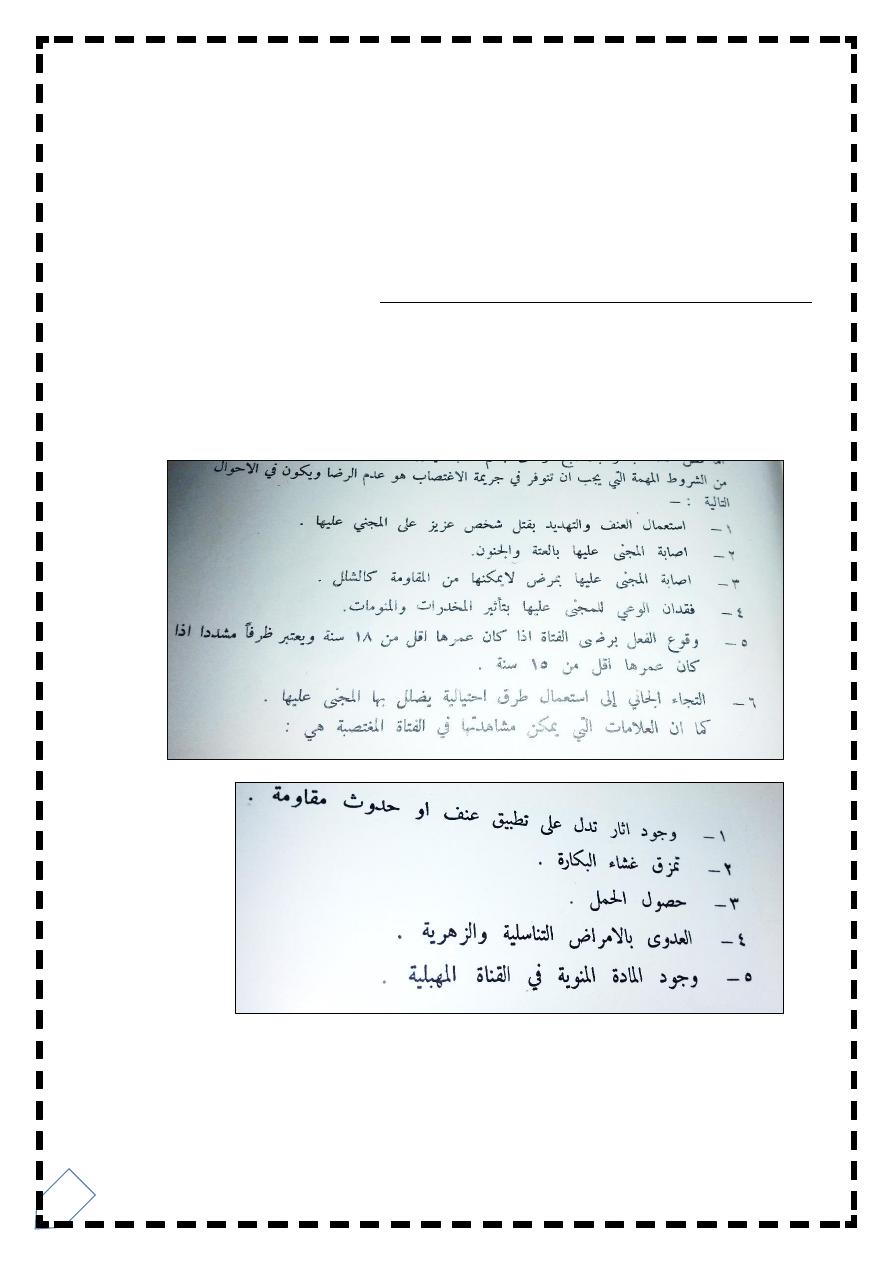 من الشروط المهمة التي يجب ان تتوفر في جريمة الاغتصاب هو عدم الرضا ويكون في الاحوال
التالية : –
١– استعمال العنف والتهديد بقتل شخص عزيز على المجني عليها .
٢– اصابة المجنى عليها بالعتة والجنون.
٣– اصابة المجنى عليها بمرض لايمكنها من المقاومة كالشلل .
٤– فقدان الوعي للمجنى عليها بتأثير المخدرات والمنومات.
٥– وقوع الفعل برضى الفتاة اذا كان عمرها اقل من ١٨ سنة ويعتبر ظرفاً مشددا اذا
كان عمرها اقل من ١٥ سنة .
٦– التجاء الجاني إلى استعمال طرق احتيالية يضلل بها المجنى عليها .
كما ان العلامات التي يمكن مشاهدتها في الفتاة المغتصبة هي :
١– وجود اثار تدل على تطبيق عنف او حدوث مقاومة .
٢– تمزق غشاء البكارة .
٣– حصول الحمل .
٤– العدوى بالامراض التناسلية والزهرية .
٥– وجود المادة المنوية في القناة المهبلية .